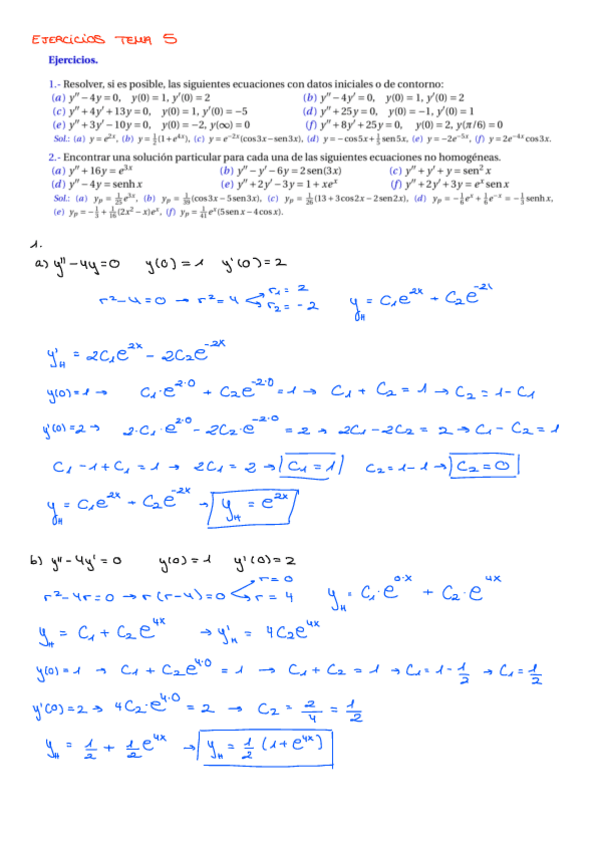 EJERCICIOS TEMA 5
Ejercicios.
1.- Resolver, si es posible, las siguientes ecuaciones con datos iniciales o de contorno:
(a) y″ − 4y = 0, y(0) = 1, y′(0) = 2 (b) y″ − 4y′ = 0, y(0) = 1, y′(0) = 2
(c) y″ + 4y′ + 13y = 0, y(0) = 1, y′(0) = −5 (d) y″ + 25y = 0, y(0) = −1, y′(0) = 1
(e) y″ + 3y′ − 10y = 0, y(0) = −2, y(∞) = 0 (f) y″ + 8y′ + 25y = 0, y(0) = 2, y(π/6) = 0
Sol.: (a) y = e^{2x}, (b) y = 1/2(1+e^{4x}), (c) y = e^{−2x}(cos3x − sen3x), (d) y = −cos5x + 1/5 sen5x, (e) y = −2e^{−5x}, (f) y = 2e^{−4x}cos3x.
2.- Encontrar una solución particular para cada una de las siguientes ecuaciones no homogéneas.
(a) y″ + 16y = e^{3x} (b) y″ − y′ − 6y = 2sen(3x) (c) y″ + y′ + y = sen² x
(d) y″ − 4y = senh x (e) y″ + 2y′ − 3y = 1 + xe^x (f) y″ + 2y′ + 3y = e^x sen x
Sol.: (a) y_p = 1/25 e^{3x}, (b) y_p = 1/39(cos3x − 5sen3x), (c) y_p = 1/26(13 + 3cos2x − 2sen2x), (d) y_p = −1/6 e^x + 1/6 e^{−x} = −1/3 senh x,
(e) y_p = −1/3 + 1/16(2x² − x)e^x, (f) y_p = 1/41 e^x(5sen x − 4cos x).
1.
a) y″ − 4y = 0 y(0) = 1 y′(0) = 2
r² − 4 = 0 → r² = 4 r₁ = 2 r₂ = −2 y_H = C₁e^{2x} + C₂e^{−2x}
y′_H = 2C₁e^{2x} − 2C₂e^{−2x}
y(0) = 1 → C₁·e^{2·0} + C₂e^{−2·0} = 1 → C₁ + C₂ = 1 → C₂ = 1 − C₁
y′(0) = 2 → 2·C₁·e^{2·0} − 2C₂·e^{−2·0} = 2 → 2C₁ − 2C₂ = 2 → C₁ − C₂ = 1
C₁ − 1 + C₁ = 1 → 2C₁ = 2 → C₁ = 1 C₂ = 1 − 1 → C₂ = 0
y_H = C₁e^{2x} + C₂e^{−2x} → y_H = e^{2x}
b) y″ − 4y′ = 0 y(0) = 1 y′(0) = 2
r² − 4r = 0 → r(r − 4) = 0 r = 0 r = 4 y_H = C₁·e^{0·x} + C₂·e^{4x}
y_H = C₁ + C₂e^{4x} → y′_H = 4C₂e^{4x}
y(0) = 1 → C₁ + C₂e^{4·0} = 1 → C₁ + C₂ = 1 → C₁ = 1 − 1/2 → C₁ = 1/2
y′(0) = 2 → 4C₂·e^{4·0} = 2 → C₂ = 2/4 = 1/2
y_H = 1/2 + 1/2 e^{4x} → y_H = 1/2 (1 + e^{4x})